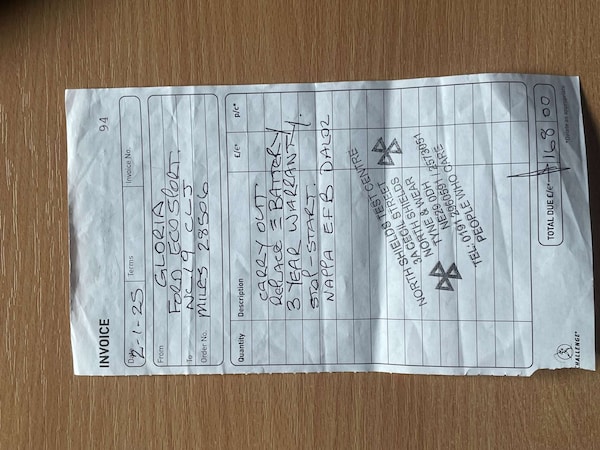 INVOICE
94
Date
2-1-25
Terms
Invoice No.
From
GLORIA
FORD ECOSPORT.
To
NC19 CLJ
Order No.
MILES 28506
Quantity
Description
£/€*
p/c*
CARRY OUT
REPLACE BATTERY
3 YEAR WARRANTY.
STOP-START.
NAPPA EFB DAL02
NORTH SHIELDS TEST CENTRE
3A CECIL STREET
NORTH SHIELDS
TYNE & WEAR
NE29 0DH
TEL: 0191 2960591
PEOPLE WHO CARE
TOTAL DUE £/€*
168 00
CHALLENGE®